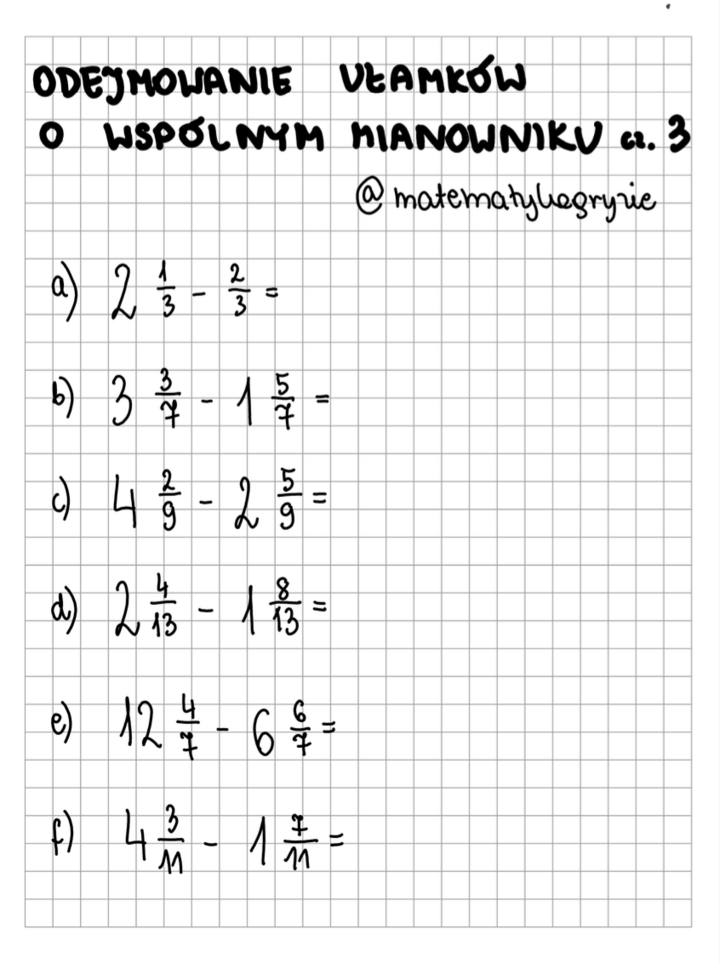 ODEJMOWANIE UŁAMKÓW
O WSPÓLNYM MIANOWNIKU cz. 3
@matematykagryzie
a) 2 1/3 - 2/3 =
b) 3 3/7 - 1 5/7 =
c) 4 2/9 - 2 5/9 =
d) 2 4/13 - 1 8/13 =
e) 12 4/7 - 6 6/7 =
f) 4 3/11 - 1 7/11 =